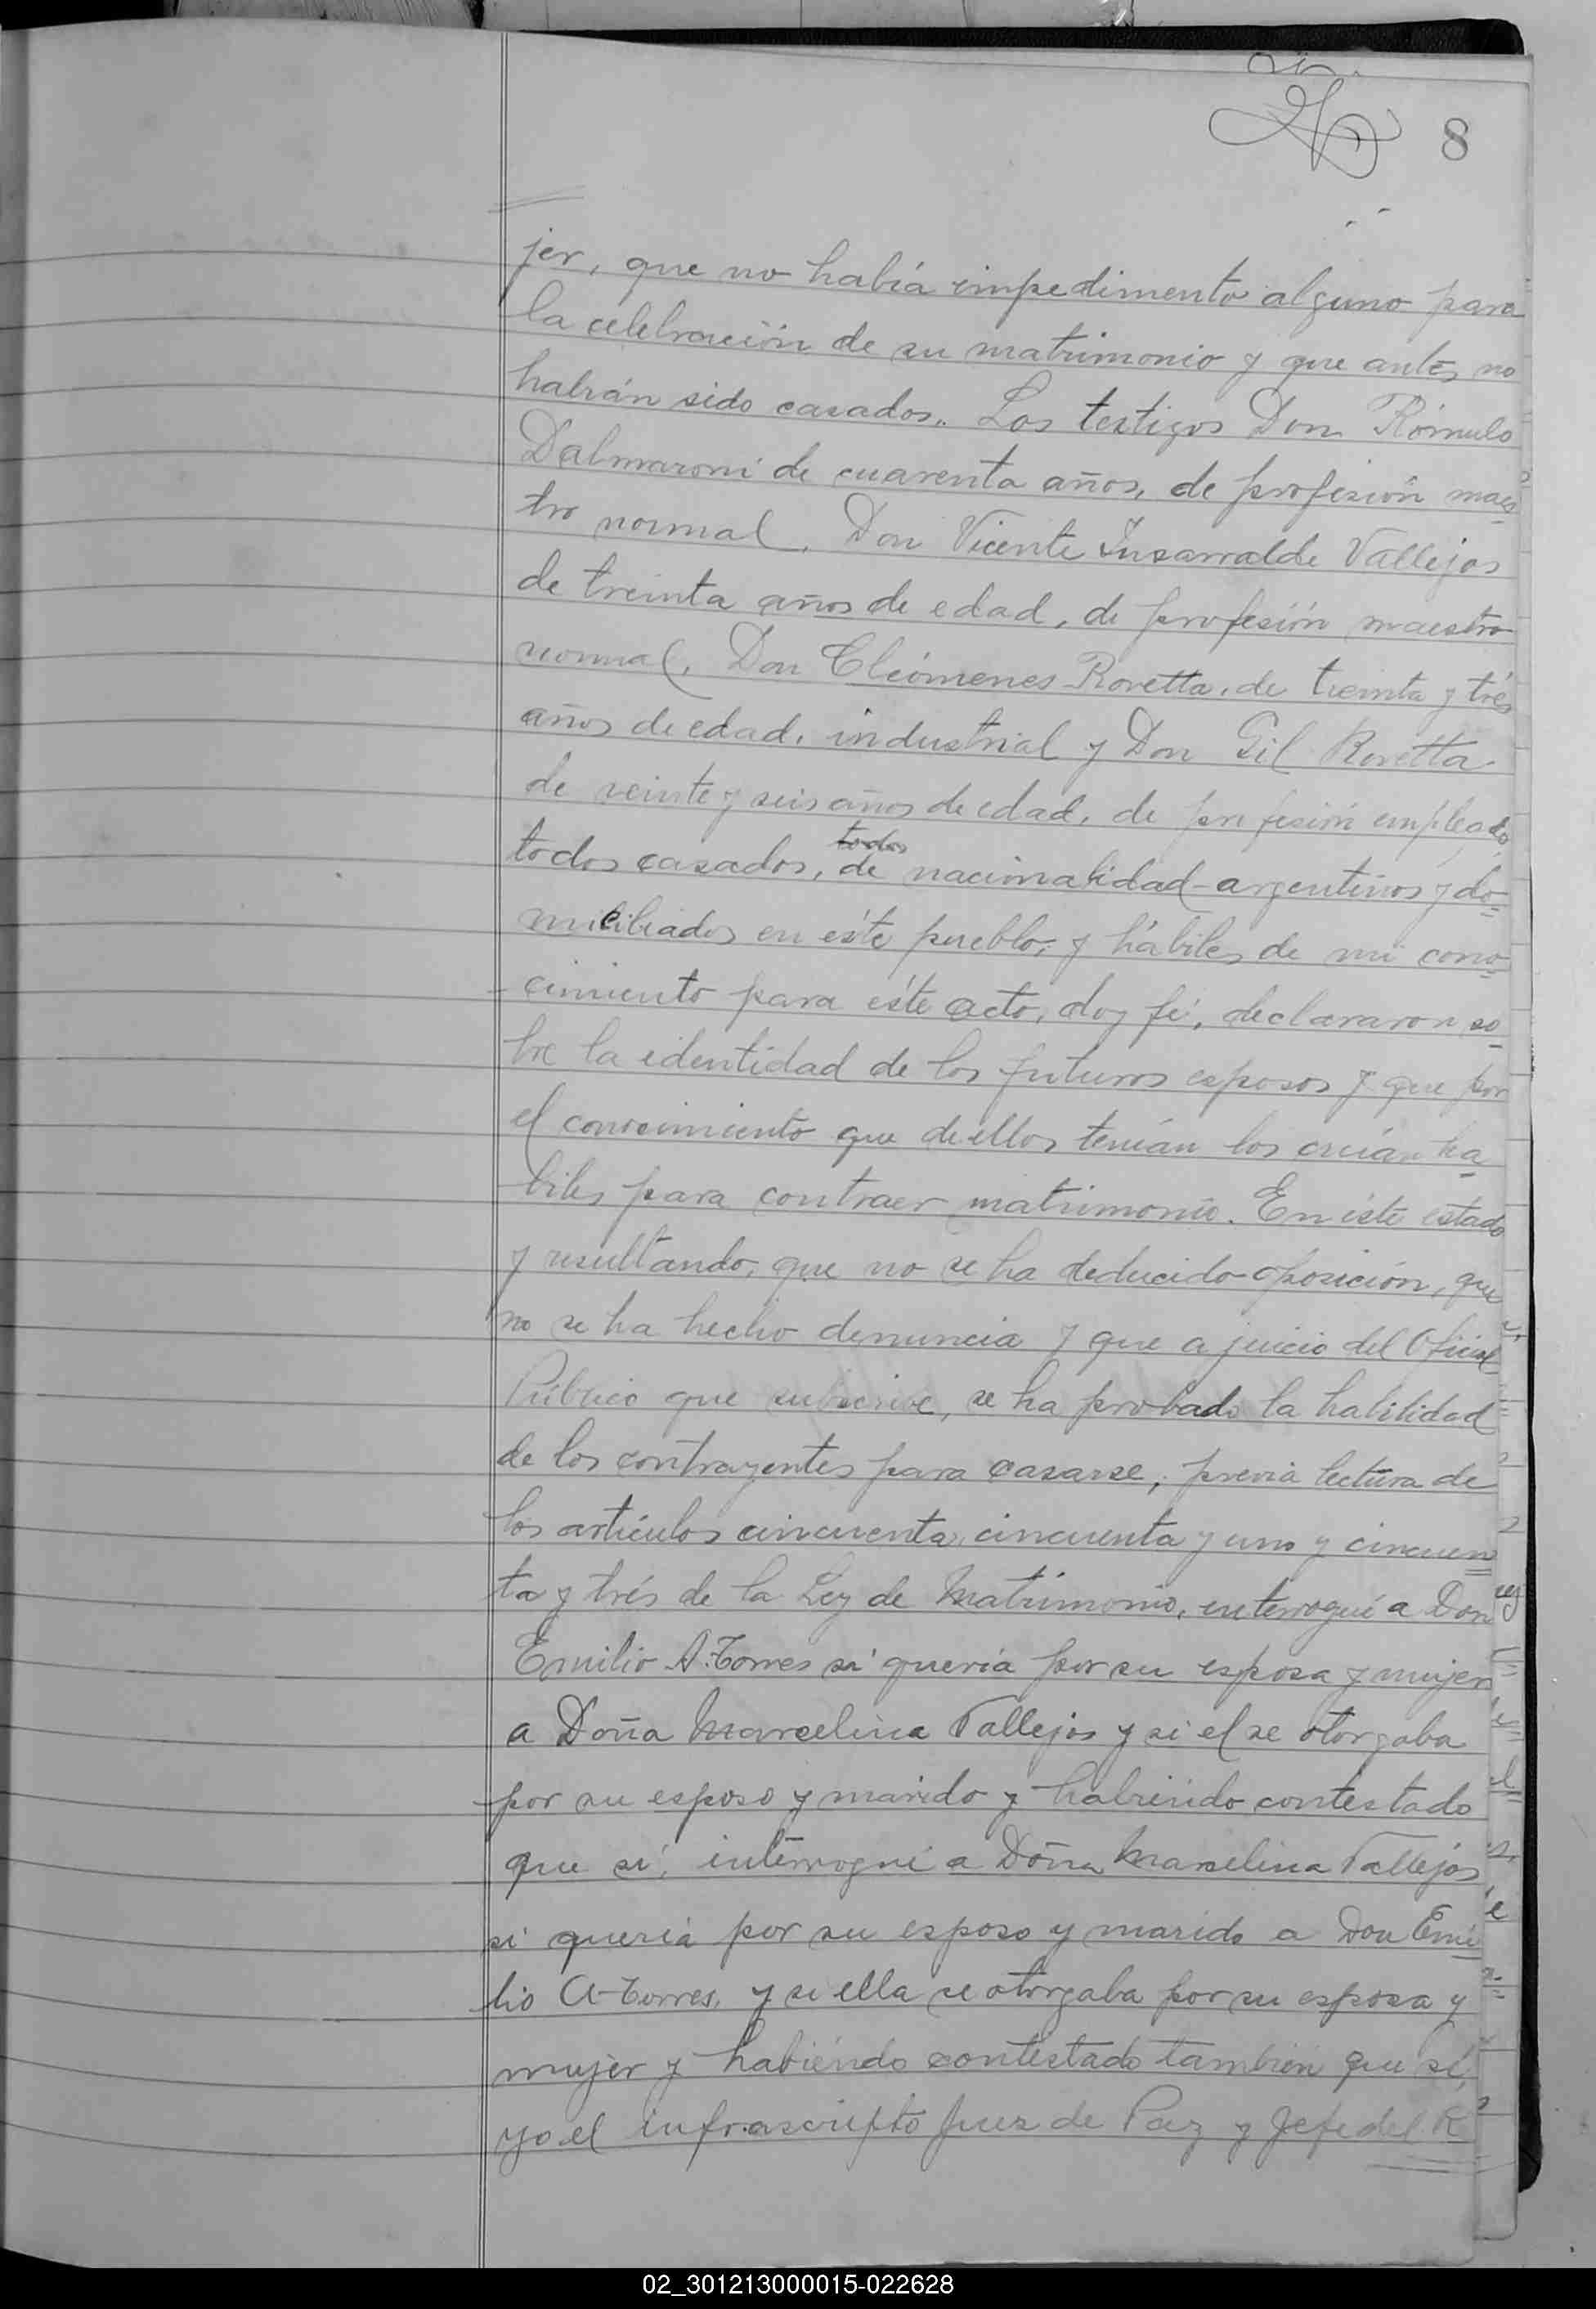 8
jer, que no había impedimento alguno para
la celebración de su matrimonio y que antes no
habían sido casados.. Los testigos Don Rómulo
Dalmaroni de cuarenta años, de profesión maes
tro normal, Don Vicente Insarralde Vallejos
de treinta años de edad, de profesión maestro
normal, Don Cleómenes Rovetta, de treinta y trés
años de edad, industrial y Don Gil Rovetta
de veinte y seis años de edad, de profesión empleado,
todos casados, todos de nacionalidad argentinos y do=
miciliados en éste pueblo, y hábiles de mi cono=
cimiento para éste acto, doy fé, declararon so=
bre la identidad de los futuros esposos y que por
el conocimiento que de ellos tenían los creían ha
biles para contraer matrimonio. En éste estado
y resultando, que no se ha deducido oposición, que
no se ha hecho denuncia y que a juicio del Oficial
Público que subscribe, se ha probado la habilidad
de los contrayentes para casarse, previa lectura de
los artículos cincuenta, cincuenta y uno y cincuen=
ta y trés de la Ley de Matrimonio, interrogué a Don
Emilio A. Torres si quería por su esposa y mujer
a Doña Marcelina Vallejos y si el se otorgaba
por su esposo y marido y habiendo contestado
que sí, interrogué a Doña Marcelina Vallejos
si quería por su esposo y marido a Don Emi
lio A. Torres, y si ella se otorgaba por su esposa y
mujer y habiéndo contestado también que sí,
yo el infrascripto Juez de Paz y Jefe del R
02_301213000015-022628